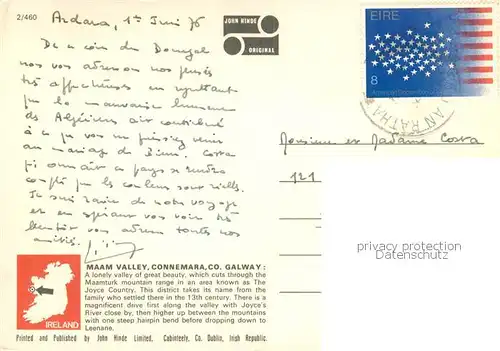 2/460
Ardara, 1er Juin 76
JOHN HINDE
ORIGINAL
EIRE
8
De ce coin du Donegal
nous vous adressons nos pensées
très affectueuses en regrettant
que la mauvaise humeur
des Algériens ait contribué
à ce que vous ne puissiez venir
au mariage de
compte que les couleurs sont réelles.
Je suis ravie de notre voyage
et en espérant vous voir très
bientôt vous adressons toutes nos
amitiés.
Monsieur et Madame Costa
121
privacy protection
watermark
IRELAND
MAAM VALLEY, CONNEMARA, CO. GALWAY:
A lonely valley of great beauty, which cuts through the
Maamturk mountain range in an area known as The
Joyce Country. This district takes its name from the
family who settled there in the 13th century. There is a
magnificent drive first along the valley with Joyce's
River close by, then higher up between the mountains
with one steep hairpin bend before dropping down to
Leenane.
Printed and Published by John Hinde Limited, Cabinteely, Co. Dublin, Irish Republic.